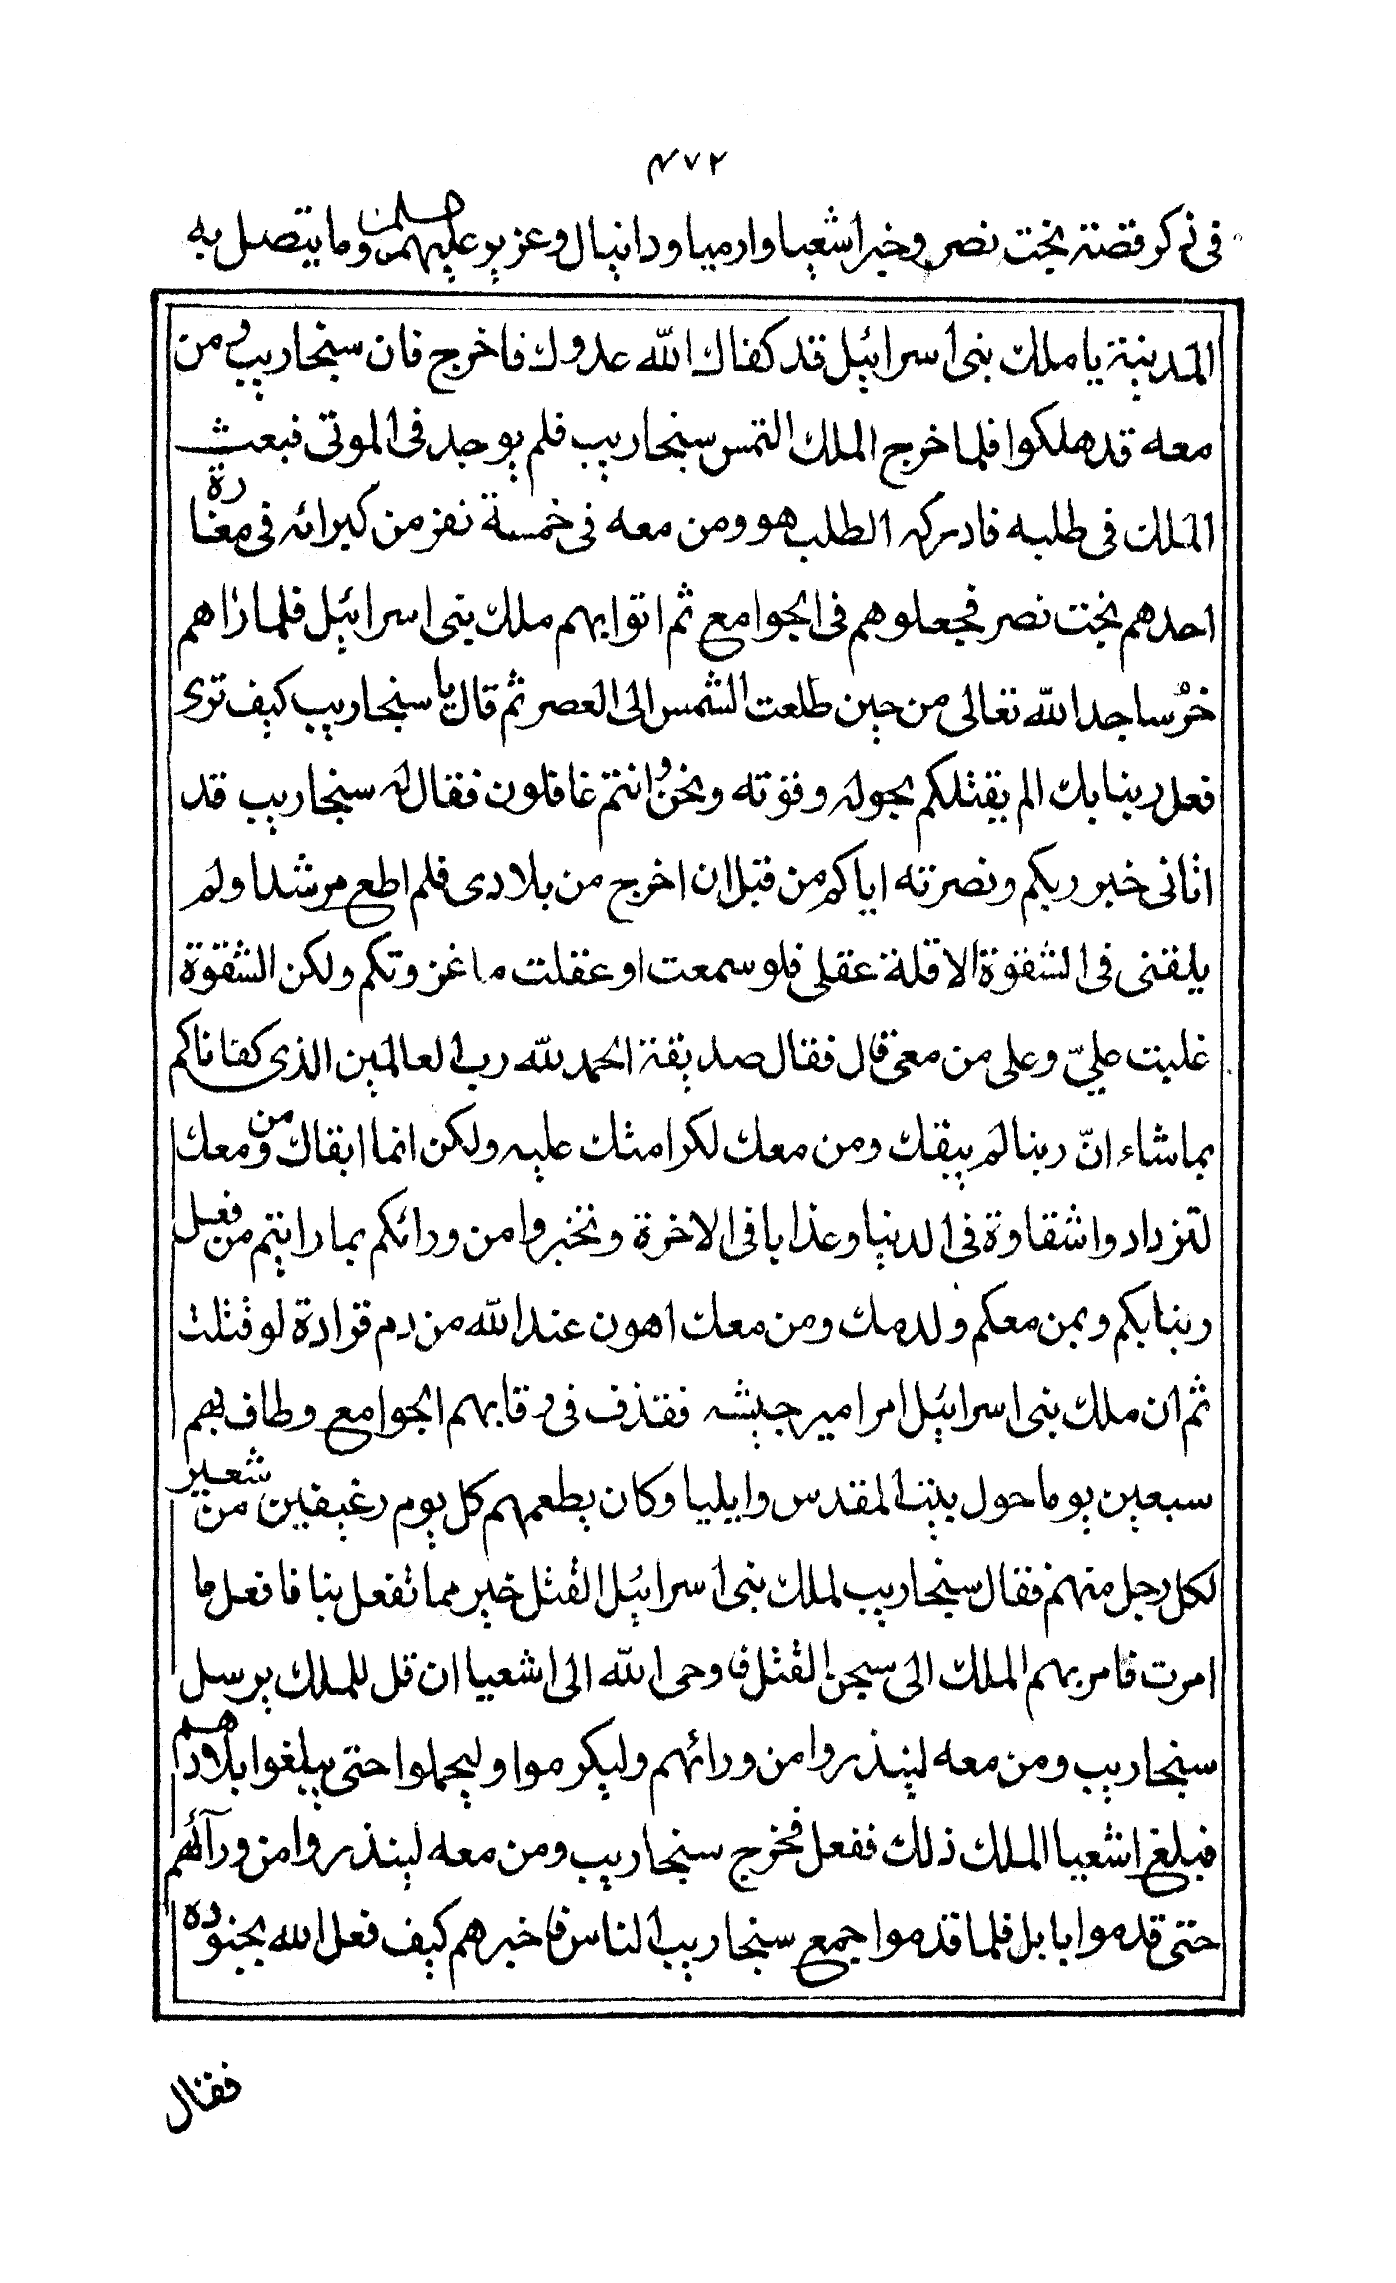 ٤٧٢
في ذكر قصة بخت نصر وخبر اشعيا وارميا ودانيال وعزير عليهم وما يتصل به
المدينة يا ملك بنى اسرائيل قد كفاك الله عدوك فاخرج فان سنجاريب ومن
معه قد هلكوا فلما خرج الملك التمس سنجاريب فلم يوجد فى الموتى فبعث
الملك فى طلبه فادركه الطلب هو ومن معه فى خمسة نفر من كبرائه فى مغارة
احدهم بخت نصر فجعلوهم فى الجوامع ثم اتوا بهم ملك بنى اسرائيل فلما راهم
خر ساجدا لله تعالى من حين طلعت الشمس الى العصر ثم قال يا سنجاريب كيف ترى
فعل ربنا بك الم يقتلكم بحوله وقوته ونحن وانتم غافلون فقال له سنجاريب قد
اتانى خبر ربكم ونصرته اياكم من قبل ان اخرج من بلادى فلم اطع مرشدا ولم
يلقنى فى الشقوة الا قلة عقلى فلو سمعت او عقلت ما غزوتكم ولكن الشقوة
غلبت عليّ وعلى من معى قال فقال صديقة الحمد لله رب العالمين الذى كفاناكم
بما شاء انّ ربنا لم يبقك ومن معك لكرامتك عليه ولكن انما ابقاك ومن معك
لتزدادوا شقاوة فى الدنيا وعذابا فى الاخرة وتخبروا من ورائكم بما رايتم من فعل
ربنا بكم وبمن معكم ولدمك ومن معك اهون عند الله من دم قرادة لو قتلت
ثم ان ملك بنى اسرائيل امر امير جيشه فقذف فى رقابهم الجوامع وطاف بهم
سبعين يوما حول بيت المقدس وايليا وكان يطعمهم كل يوم رغيفين من شعير
لكل رجل منهم فقال سنجاريب لملك بنى اسرائيل القتل خير مما تفعل بنا فافعل ما
امرت فامر بهم الملك الى سجن القتل فاوحى الله الى اشعيا ان قل للملك يرسل
سنجاريب ومن معه لينذروا من ورائهم وليكرموا وليحملوا حتى يبلغوا بلادهم
فبلغ اشعيا الملك ذلك ففعل فخرج سنجاريب ومن معه لينذروا من ورآئهم
حتى قدموا بابل فلما قدموا جمع سنجاريب الناس فاخبرهم كيف فعل الله بجنوده
فقال